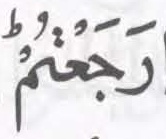 رَجَعْتُمْ ؕ